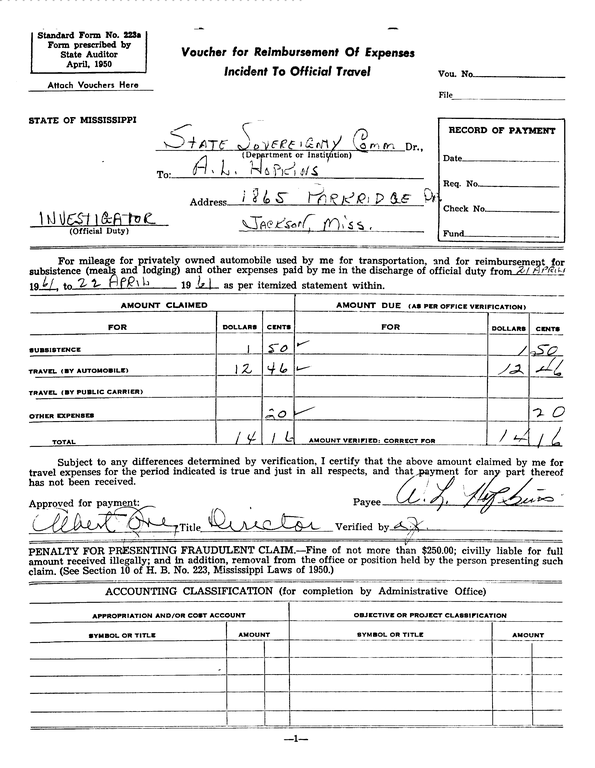 Standard Form No. 223a
Form prescribed by
State Auditor
April, 1950
Attach Vouchers Here
Voucher for Reimbursement Of Expenses
Incident To Official Travel
Vou. No.
File
STATE OF MISSISSIPPI
STATE SOVEREIGNTY Comm Dr.,
(Department or Institution)
To: A. L. HOPKINS
Address 1865 PARKRIDGE Dr.
JACKSON, MISS.
INVESTIGATOR
(Official Duty)
RECORD OF PAYMENT
Date
Req. No.
Check No.
Fund
For mileage for privately owned automobile used by me for transportation, and for reimbursement for
subsistence (meals and lodging) and other expenses paid by me in the discharge of official duty from 21 APRIL
1961, to 22 APRIL 1961 as per itemized statement within.
AMOUNT CLAIMED AMOUNT DUE (AS PER OFFICE VERIFICATION)
FOR DOLLARS CENTS FOR DOLLARS CENTS
SUBSISTENCE 1 50 ✓ 1 50
TRAVEL (BY AUTOMOBILE) 12 46 ✓ 12 46
TRAVEL (BY PUBLIC CARRIER)
OTHER EXPENSES 20 ✓ 20
TOTAL 14 16 AMOUNT VERIFIED: CORRECT FOR 14 16
Subject to any differences determined by verification, I certify that the above amount claimed by me for
travel expenses for the period indicated is true and just in all respects, and that payment for any part thereof
has not been received.
Approved for payment: Payee A. L. Hopkins
Albert Title Director Verified by
PENALTY FOR PRESENTING FRAUDULENT CLAIM.—Fine of not more than $250.00; civilly liable for full
amount received illegally; and in addition, removal from the office or position held by the person presenting such
claim. (See Section 10 of H. B. No. 223, Mississippi Laws of 1950.)
ACCOUNTING CLASSIFICATION (for completion by Administrative Office)
APPROPRIATION AND/OR COST ACCOUNT OBJECTIVE OR PROJECT CLASSIFICATION
SYMBOL OR TITLE AMOUNT SYMBOL OR TITLE AMOUNT
—1—